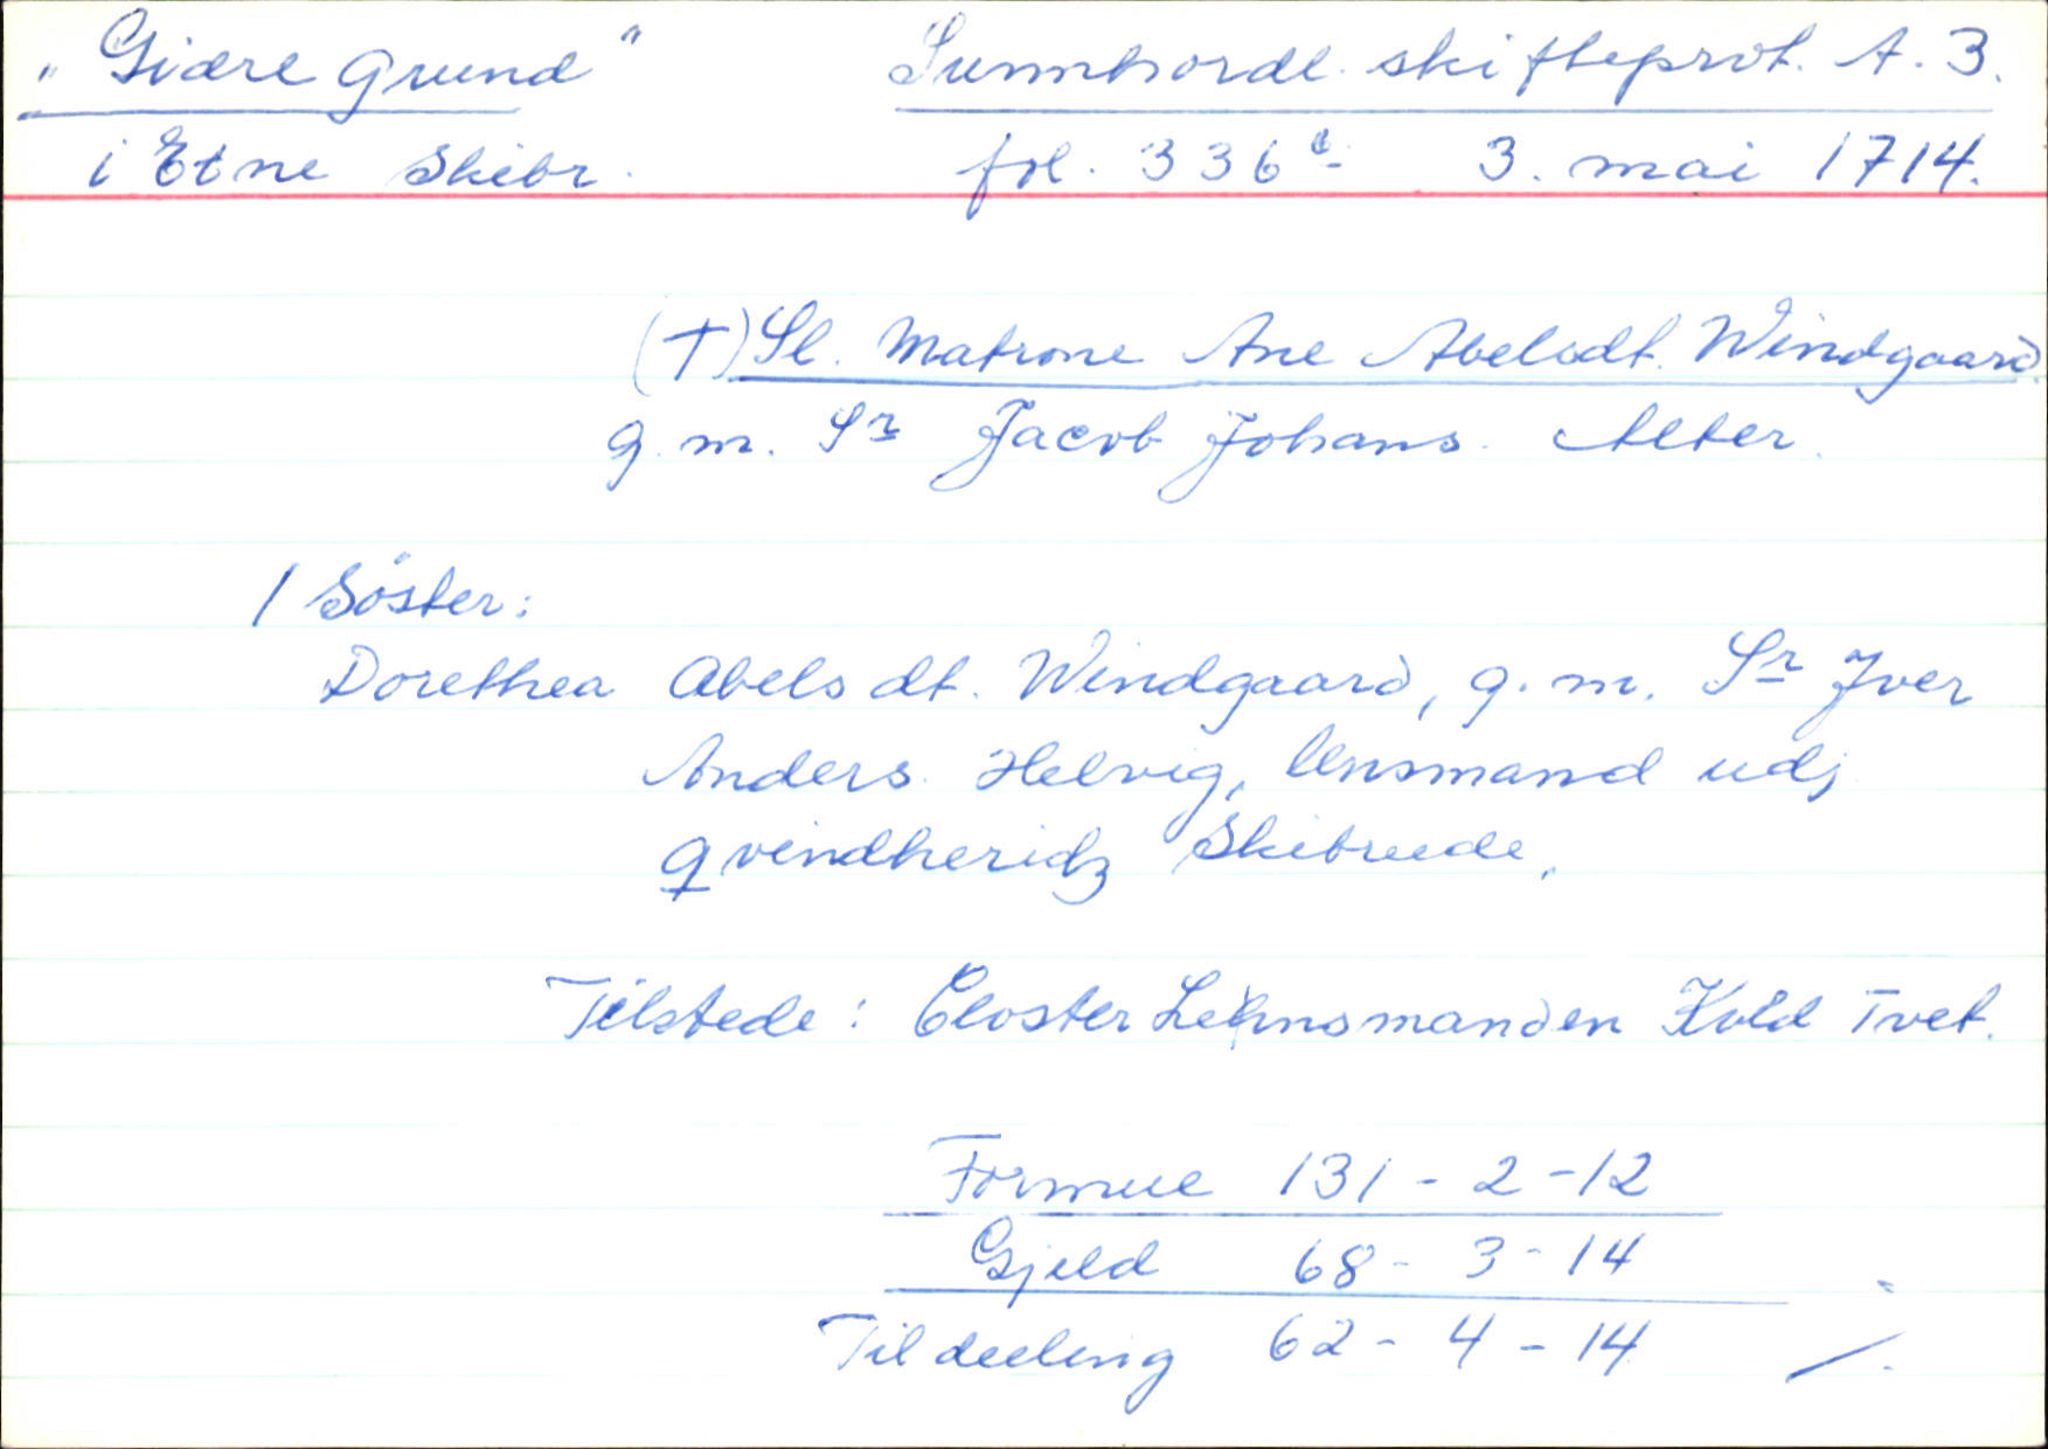 "Giære grund" Sunnhordl. skifteprot. A. 3.
i Etne Skibr. fol. 336 3. mai 1714.
(†) Sl. Matrone Ane Abelsdt. Windgaard.
g. m. Sr Jacob Johans. Alter.
1 Söster:
Dorethea Abelsdt. Windgaard, g. m. Sr Iver
Anders. Helvig, lensmand udj
Qvindheridz Skibreede.
Tilstede: Closter Lehnsmanden Kold Tvet.
Formue 131 - 2 - 12
Gjeld 68 - 3 - 14
Til deeling 62 - 4 - 14 /.